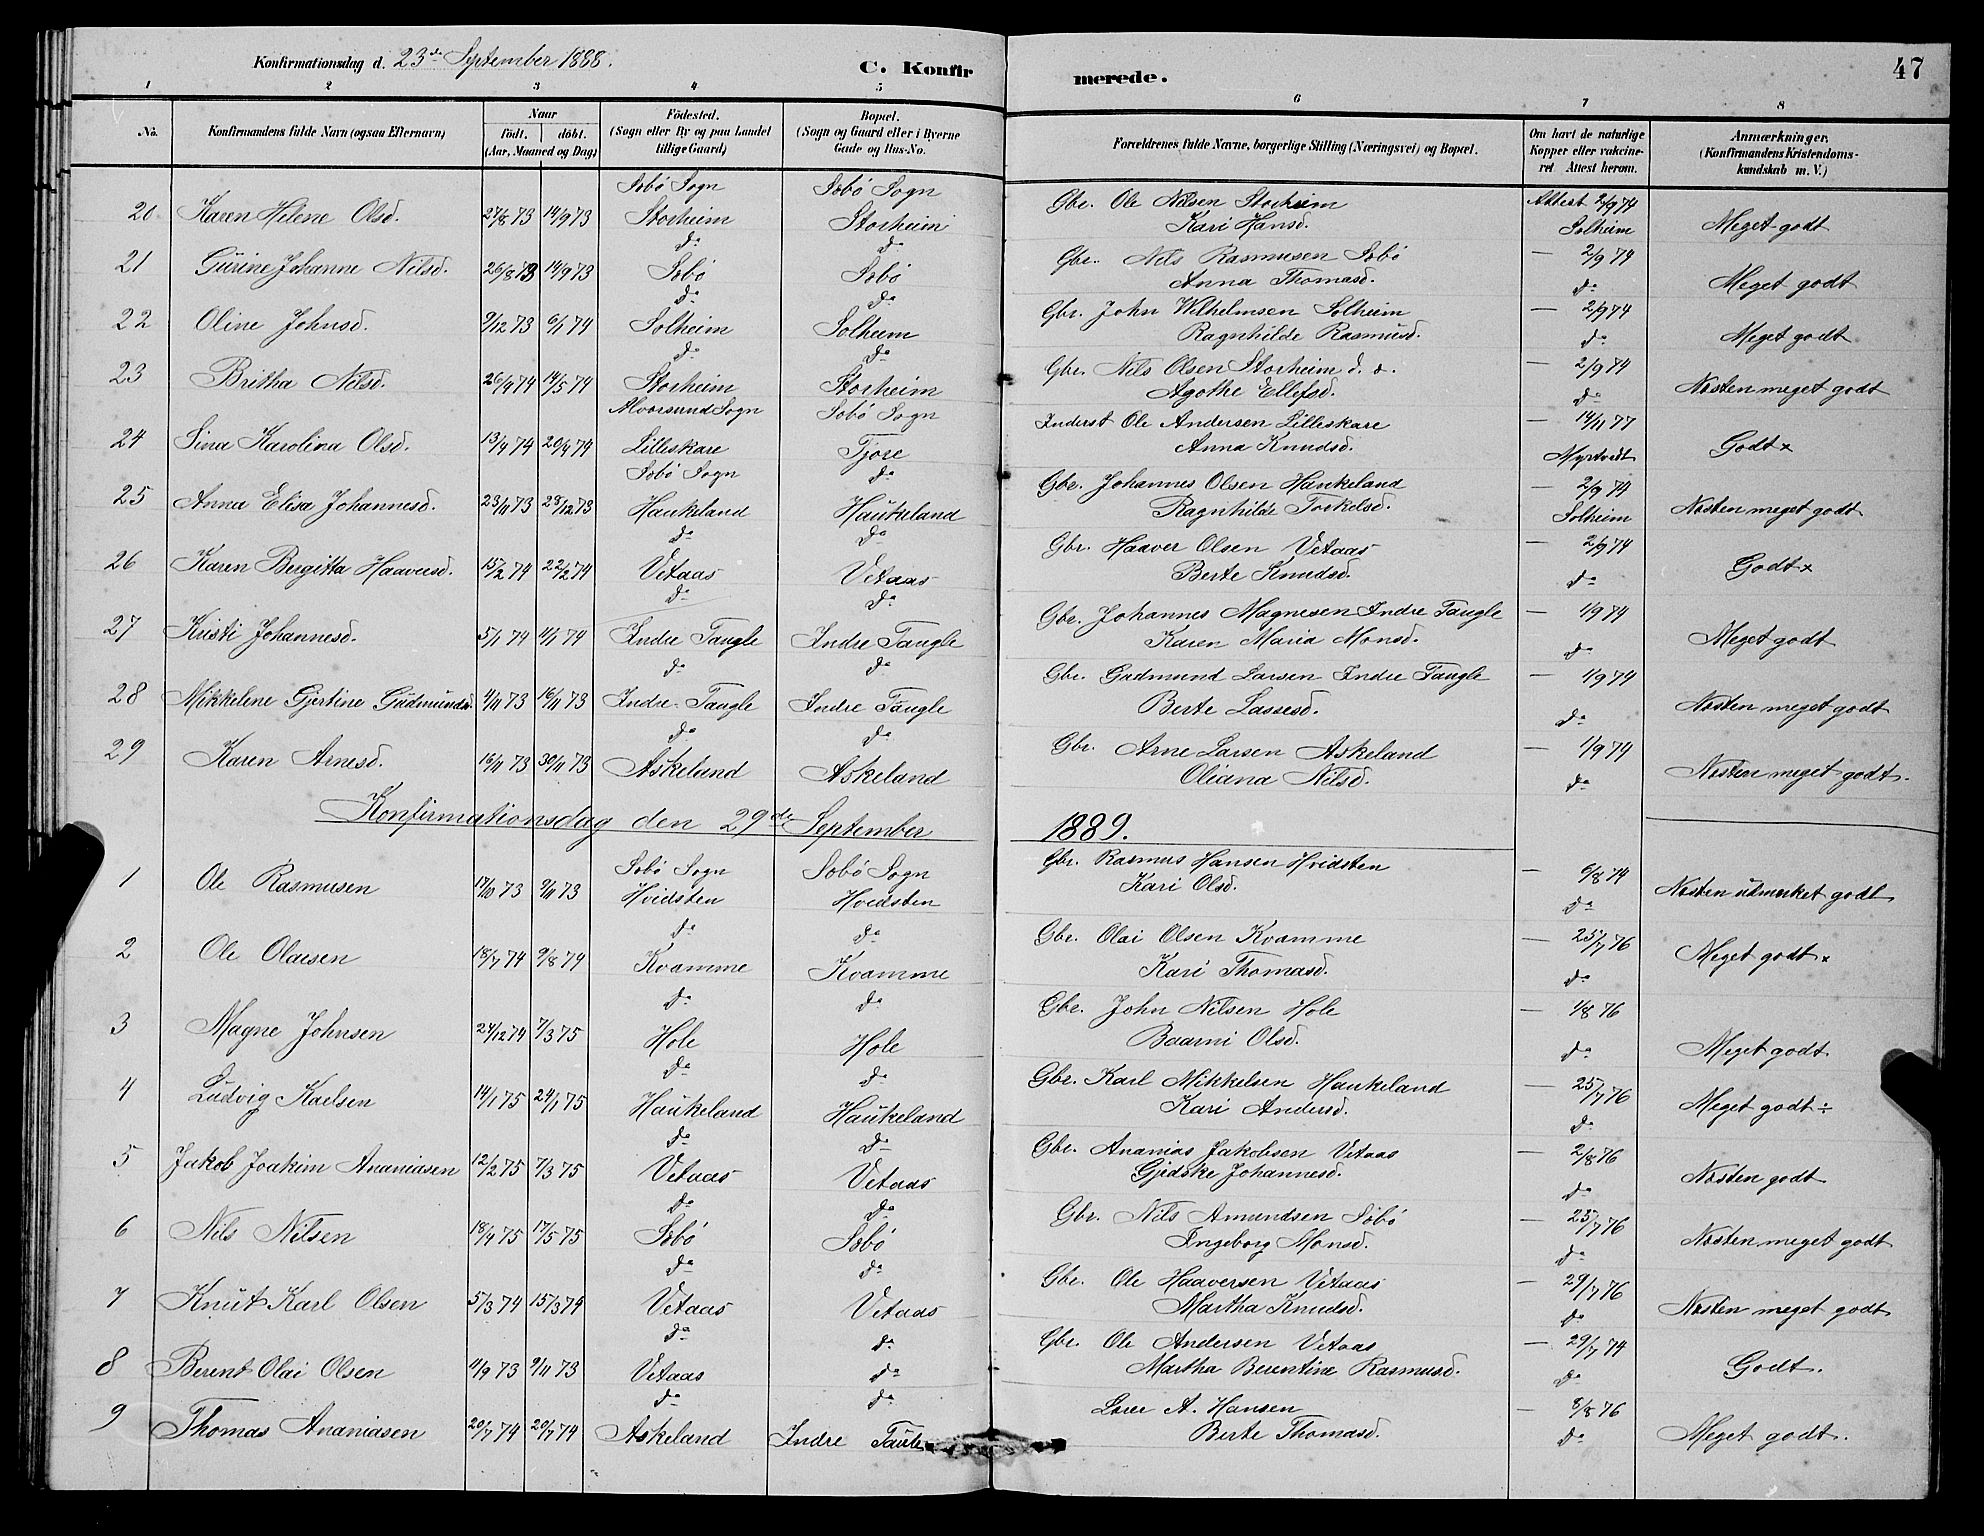 Konfirmationsdag d. 23de September 1888. C. Konfirmerede. 47
1 2 3 4 5 6 7 8
No. Konfirmandens fulde Navn (ogsaa Efternavn) Naar født. døbt. (Aar, Maaned og Dag) Fødested. (Sogn eller By og paa Landet tillige Gaard) Bopæl. (Sogn og Gaard eller i Byerne Gade og Hus-No. Forældrenes fulde Navne, borgerlige Stilling (Næringsvei) og Bopæl. Om havt de naturlige Kopper eller vakcineret. Attest herom. Anmærkninger, (Konfirmandens Kristendomskundskab m. V.)
Sæbø Sogn Sæbø Sogn Gbr. Ole Nilsen Storheim Attest 2/9 74
20 Karen Helene Olsd. 27/8 73 14/9 73 Storheim Storheim Kari Hansd. Solheim Meget godt
do do Gbr. Nils Rasmusen Sæbø — 2/9 74
21 Gurine Johanne Nilsd. 26/8 73 14/9 73 Sæbø Sæbø Anna Thomasd. do Meget godt
do do Gbr. John Wilhelmsen Solheim — 2/9 74
22 Oline Johnsd. 9/12 73 6/1 74 Solheim Solheim Ragnhilde Rasmusd. do Meget godt
do do Gbr. Nils Olsen Storheim d. o. — 2/9 74
23 Britha Nilsd. 26/4 74 14/5 74 Storheim Storheim Agothe Ellefsd. do Næsten meget godt
Alversund Sogn Sæbø Sogn Inderst Ole Andersen Lilleskare — 14/11 77
24 Sina Karolina Olsd. 13/4 74 20/4 74 Lilleskare Tjore Anna Knudsd. Myrtvedt Godt x
Sæbø Sogn do Gbr. Johannes Olsen Haukeland — 2/9 74
25 Anna Elisa Johannesd. 23/11 73 28/12 73 Haukeland Haukeland Ragnhilde Torkelsd. Solheim Næsten meget godt
do do Gbr. Haaver Olsen Vetaas — 2/9 74
26 Karen Bergitta Haaversd. 15/2 74 22/2 74 Vetaas Vetaas Berte Knudsd. do Godt x
do do Gbr. Johannes Magnesen Indre Taugle — 1/9 74
27 Kristi Johannesd. 5/1 74 11/1 74 Indre Taugle Indre Taugle Karen Maria Monsd. do Meget godt
do do Gbr. Gudmund Larsen Indre Taugle — 1/9 74
28 Mikkelene Gjertine Gudmundsd. 4/11 73 16/11 73 Indre Taugle Indre Taugle Berte Lassesd. do Næsten meget godt
do do Gbr. Arne Larsen Askeland — 1/9 74
29 Karen Arnesd. 16/11 73 30/11 73 Askeland Askeland Oliana Nilsd. do Næsten meget godt.
Konfirmationsdag den 29de September 1889.
Sæbø Sogn Sæbø Sogn Gbr. Rasmus Hansen Hvidsten — 6/8 74
1 Ole Rasmusen 17/10 73 9/11 73 Hvidsten Hvidsten Kari Olsd. do Næsten udmerket godt
do do Gbr. Olai Olsen Kvamme — 25/7 76
2 Ole Olaisen 18/7 74 9/8 74 Kvamme Kvamme Kari Thomasd. do Meget godt x
do do Gbr. John Nilsen Hole — 1/8 76
3 Magne Johnsen 24/12 74 7/3 75 Hole Hole Baarni Olsd. do Meget godt.
do do Gbr. Karl Mikkelsen Haukeland — 25/7 76
4 Ludvig Karlsen 14/1 75 24/1 75 Haukeland Haukeland Kari Andersd. do Meget godt ÷
do do Gbr. Ananias Jakobsen Vetaas — 2/8 76
5 Jakob Joakim Ananiasen 12/2 75 7/3 75 Vetaas Vetaas Gjedske Johannesd. do Næsten godt
do do Gbr. Nils Amundsen Sæbø — 25/7 76
6 Nils Nilsen 18/4 75 17/5 75 Sæbø Sæbø Ingeborg Monsd. do Næsten meget godt
do do Gbr. Ole Haaversen Vetaas — 29/7 76
7 Knut Karl Olsen 5/3 74 15/3 74 Vetaas Vetaas Martha Knudsd. do Næsten meget godt
do do Gbr. Ole Andersen Vetaas — 29/7 74
8 Berent Olai Olsen 11/9 73 9/11 73 Vetaas do Martha Berentine Rasmusd. do Godt.
do do A. Hansen — 8/8 76
9 Thomas Ananiasen 20/7 74 20/7 74 Askeland Indre Berte Thomasd. do Meget godt.